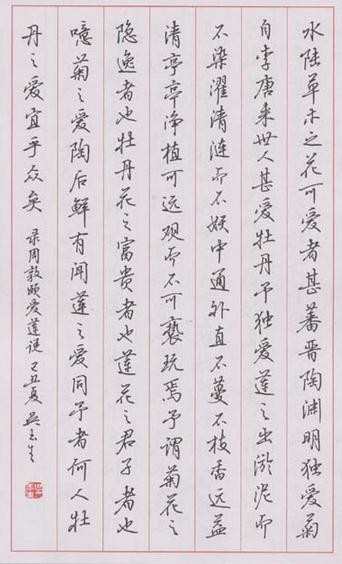 水陆草木之花可爱者甚蕃晋陶渊明独爱菊
自李唐来世人甚爱牡丹予独爱莲之出淤泥而
不染濯清涟而不妖中通外直不蔓不枝香远益
清亭亭净植可远观而不可亵玩焉予谓菊花之
隐逸者也牡丹花之富贵者也莲花之君子者也
噫菊之爱陶后鲜有闻莲之爱同予者何人牡
丹之爱宜乎众矣 录周敦颐爱莲说 己丑夏 吴玉生